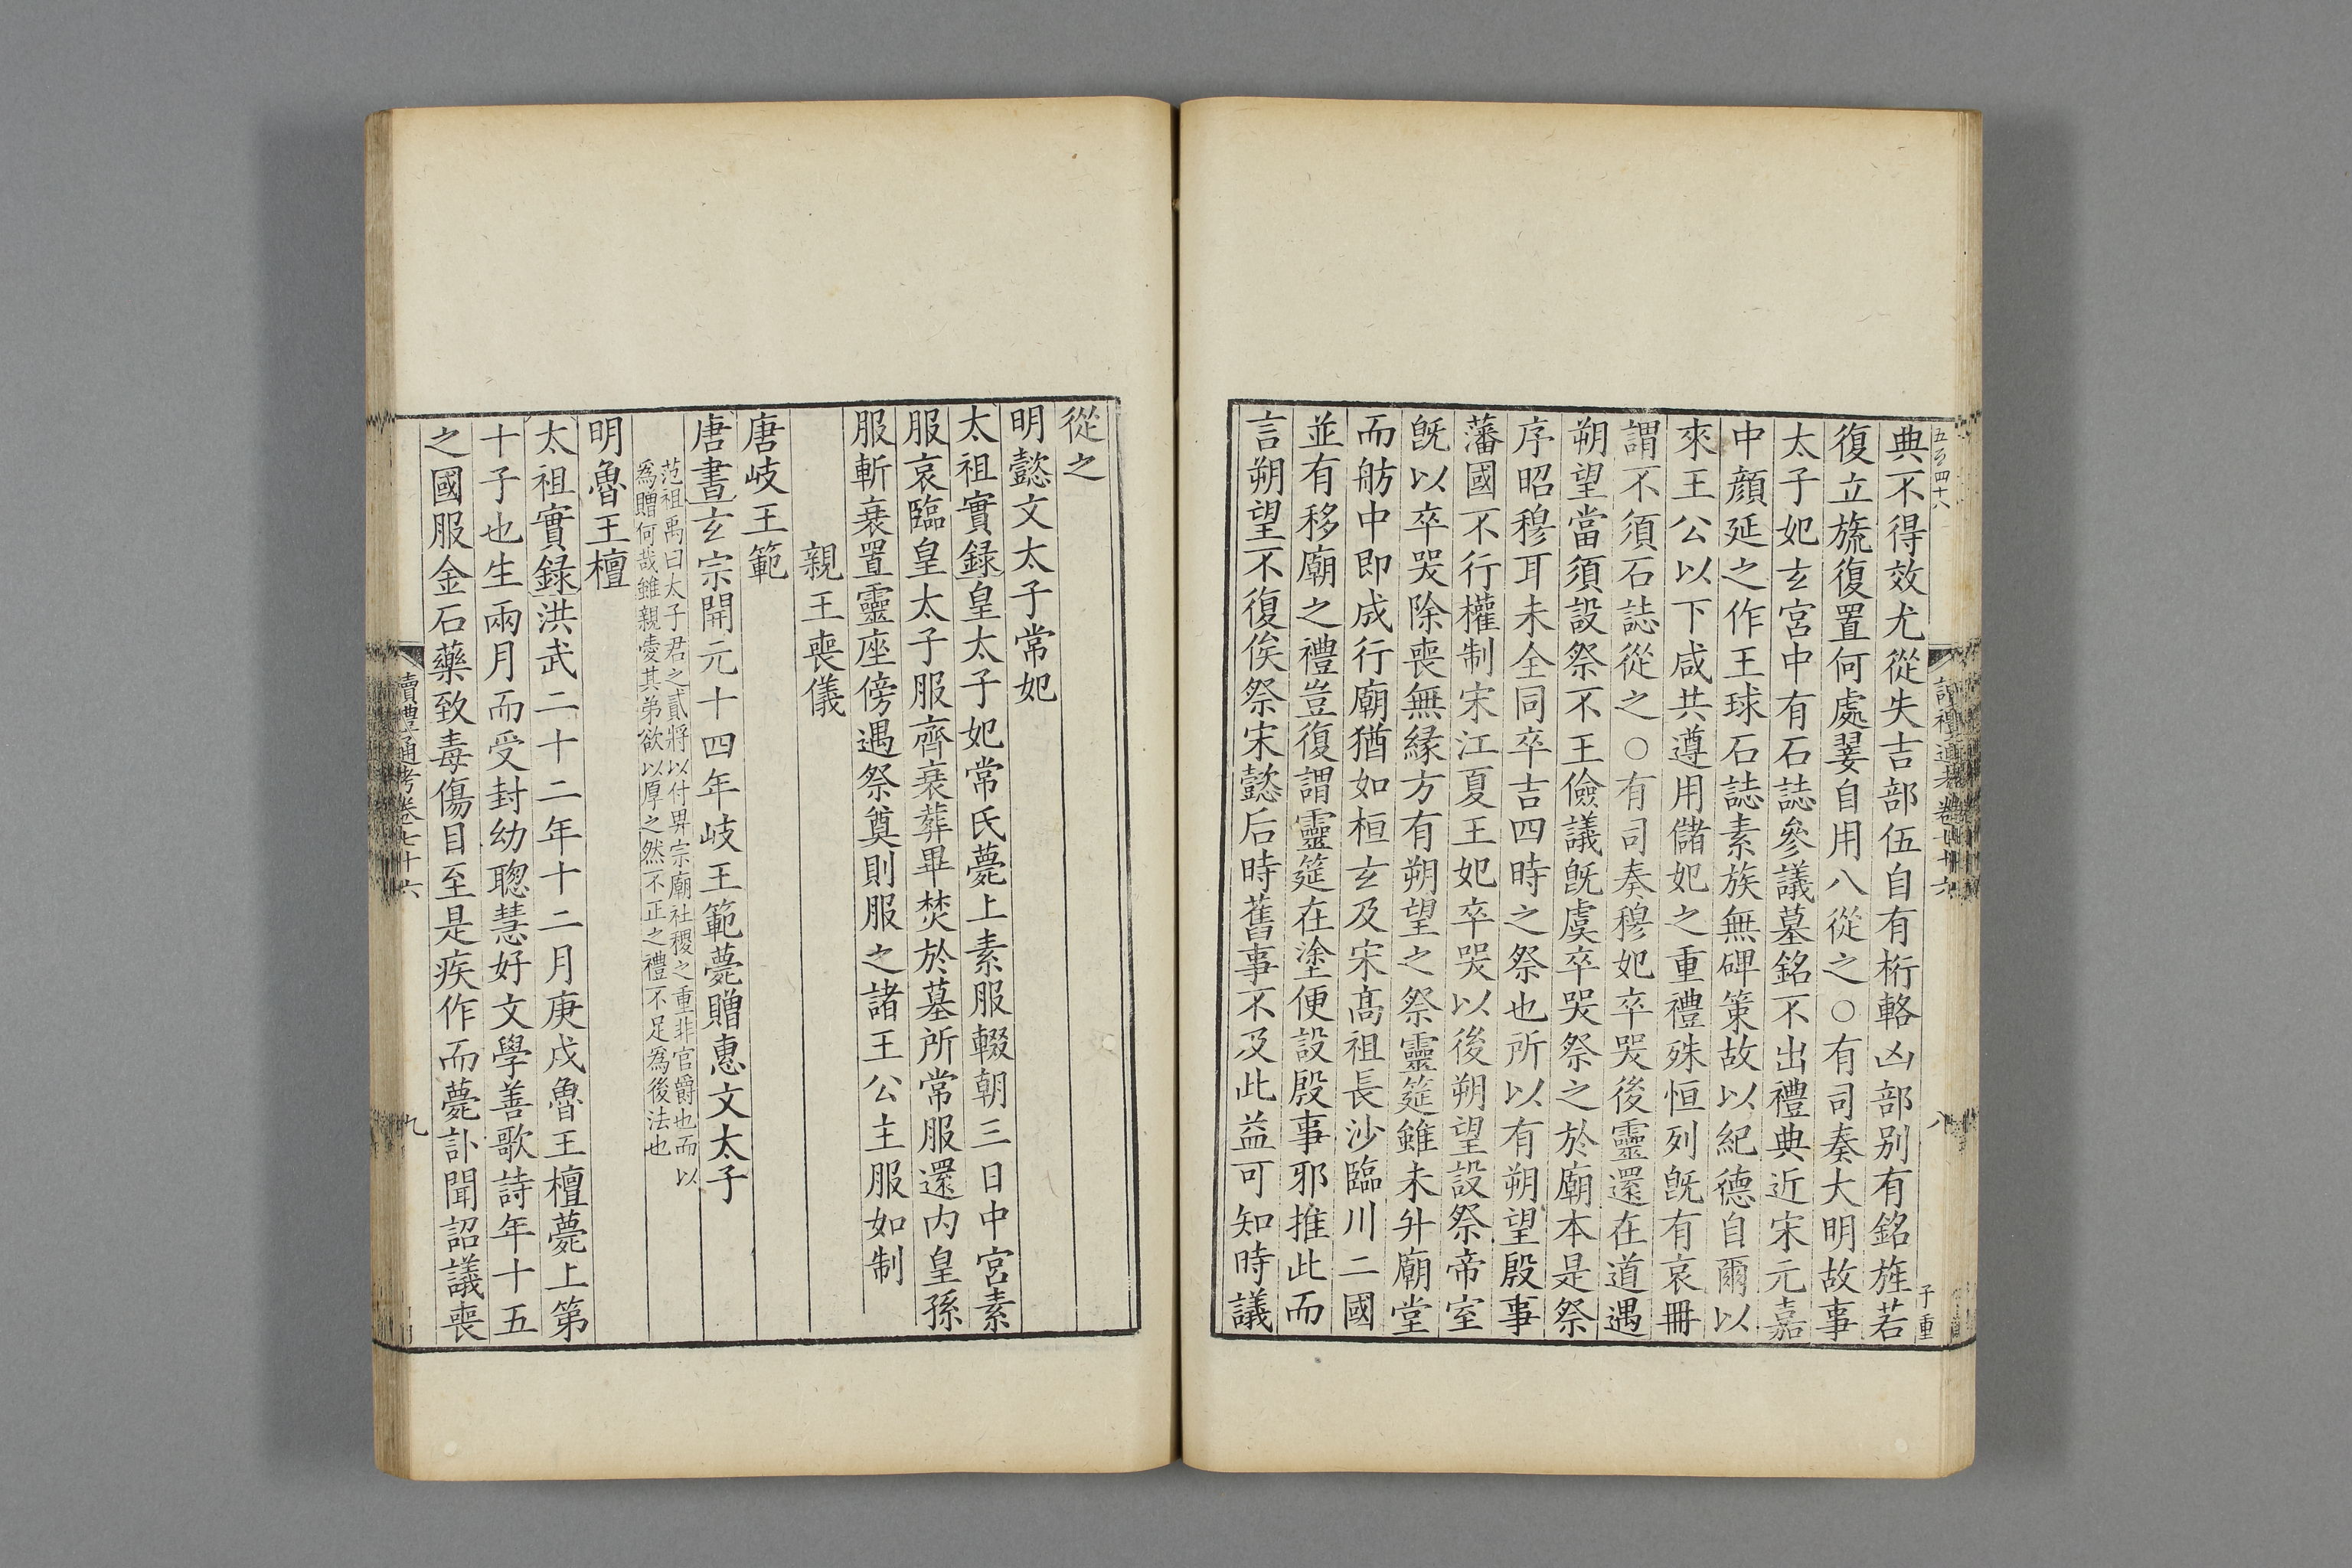 五百四十八
讀禮通考卷七十六
八
子重
典不得效尤從失吉部伍自有桁輅凶部别有銘旌若
復立旒復置何處翣自用八從之○有司奏大明故事
太子妃玄宮中有石誌參議墓銘不出禮典近宋元嘉
中顔延之作王球石誌素族無碑策故以紀德自爾以
來王公以下咸共遵用儲妃之重禮殊恒列旣有哀冊
謂不須石誌從之○有司奏穆妃卒哭後靈還在道遇
朔望當須設祭不王儉議旣虞卒哭祭之於廟本是祭
序昭穆耳未全同卒吉四時之祭也所以有朔望殷事
藩國不行權制宋江夏王妃卒哭以後朔望設祭帝室
旣以卒哭除喪無緣方有朔望之祭靈筵雖未升廟堂
而舫中即成行廟猶如桓玄及宋髙祖長沙臨川二國
並有移廟之禮豈復謂靈筵在塗便設殷事邪推此而
言朔望不復俟祭宋懿后時舊事不及此益可知時議
從之
明懿文太子常妃
太祖實録皇太子妃常氏薨上素服輟朝三日中宮素
服哀臨皇太子服齊衰葬畢焚於墓所常服還内皇孫
服斬衰置靈座傍遇祭奠則服之諸王公主服如制
親王喪儀
唐岐王範
唐書玄宗開元十四年岐王範薨贈惠文太子
范祖禹曰太子君之貳將以付畀宗廟社稷之重非官爵也而以
爲贈何哉雖親愛其弟欲以厚之然不正之禮不足爲後法也
明魯王檀
太祖實録洪武二十二年十二月庚戌魯王檀薨上第
十子也生兩月而受封幼聰慧好文學善歌詩年十五
之國服金石藥致毒傷目至是疾作而薨訃聞詔議喪
讀禮通考卷七十六
九